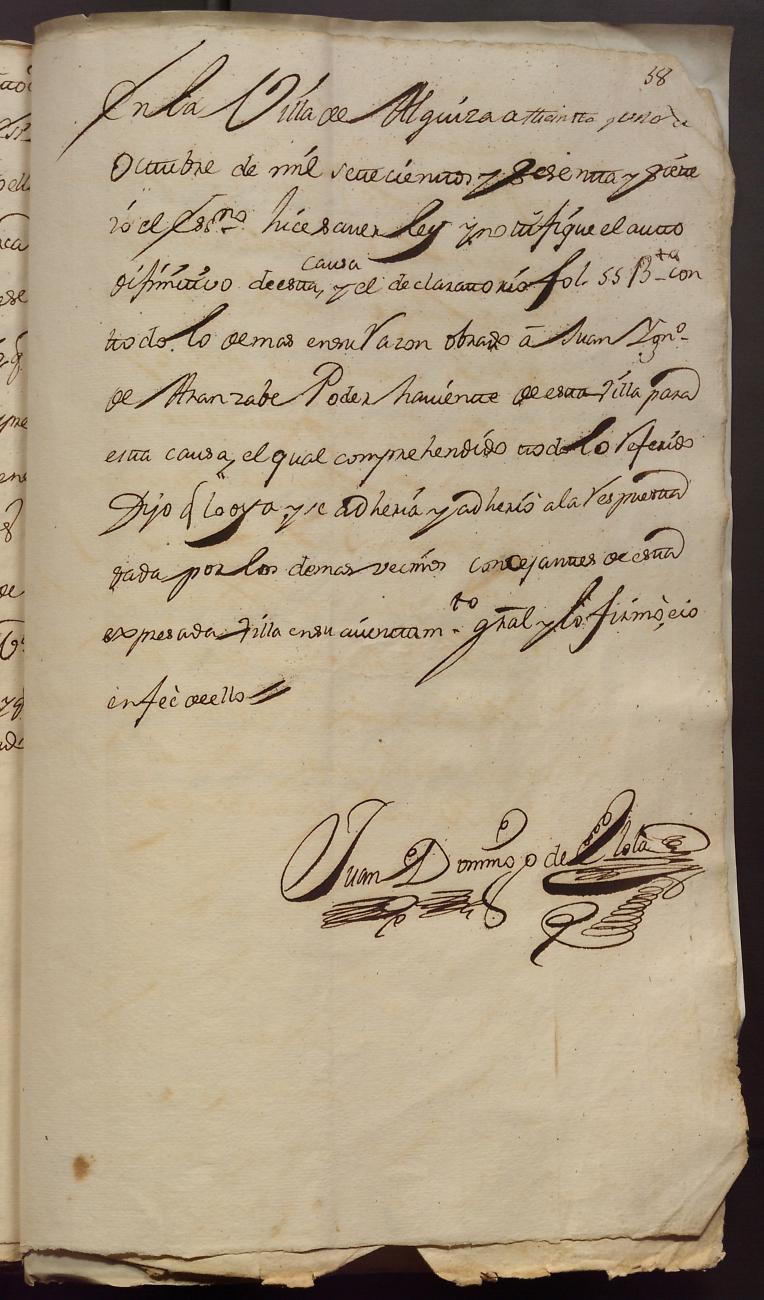 58
En la Villa de Alquiza a treintta y uno de
Octtubre de mil settecienttos y sesentta y siette
io el Essno hice saver ley y nottifique el autto
difinittivo de esta causa, y el declarattorio fol. 55 Bta con
ttodo lo demas en su razon obrado â Juan Ygno.
de Aranzabe Poder havientte de esta Villa para
esta causa, el qual comprehendido ttodo lo referido
Dijo q lo oya y se adheria y adheriò a la respuestta
dada por los demas vecinos concejanttes de esta
expresada Villa en su aiunttamto gral y lo firmò, e io
en feè de ello
Juan Domingo de Ollola